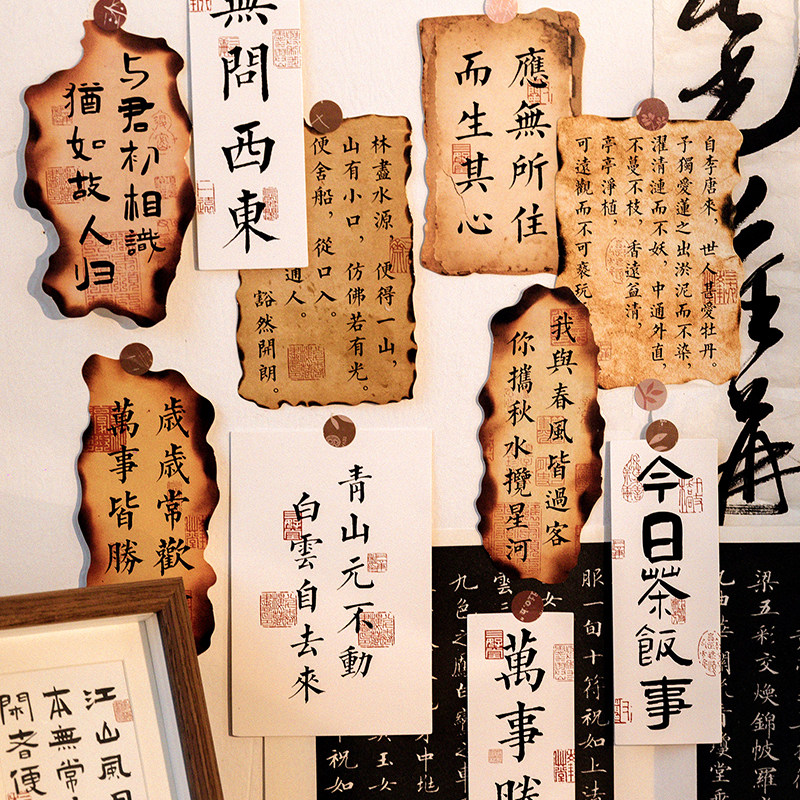 与君初相識
猶如故人归
無問西東
林盡水源
便得一山，
山有小口，仿佛若有光。
便舍船，從口入。
通人。
豁然開朗。
應無所住
而生其心
自李唐來，世人甚愛牡丹。
予獨愛蓮之出淤泥而不染，
濯清漣而不妖，中通外直，
不蔓不枝，香遠益清，
亭亭淨植，
可遠觀而不可褻玩
歲歲常歡
萬事皆勝
青山元不動
白雲自去來
我與春風皆過客
你攜秋水攬星河
今日茶飯事
萬事勝
江山風月
本無常
閑者便
眼一旬十符祝如上法
梁五彩交煥錦帔羅
九色之
玉女
中地
祝如